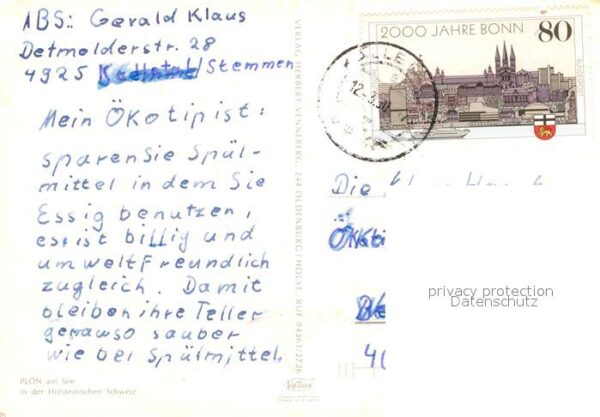 ABS.: Gerald Klaus
Detmolderstr. 28
4925 /Stemmen
Mein ÖKotip ist:
sparen Sie Spül-
mittel in dem Sie
Essig benutzen,
es ist billig und
umweltfreundlich
zugleich. Damit
bleiben ihre Teller
genauso sauber
wie bei Spülmittel.
PLÖN am See
in der Holsteinischen Schweiz
VERLAG HERBERT NENNEBERG, 244 OLDENBURG / HOLST. RUF 04361/2726
2000 JAHRE BONN 80
12.3.90
Die
ÖKoti
privacy protection
Datenschutz